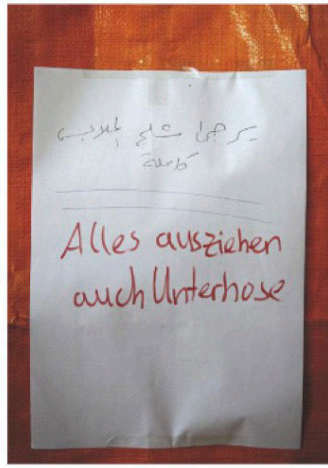 يرجى شلح الملابس
كاملة
Alles ausziehen
auch Unterhose